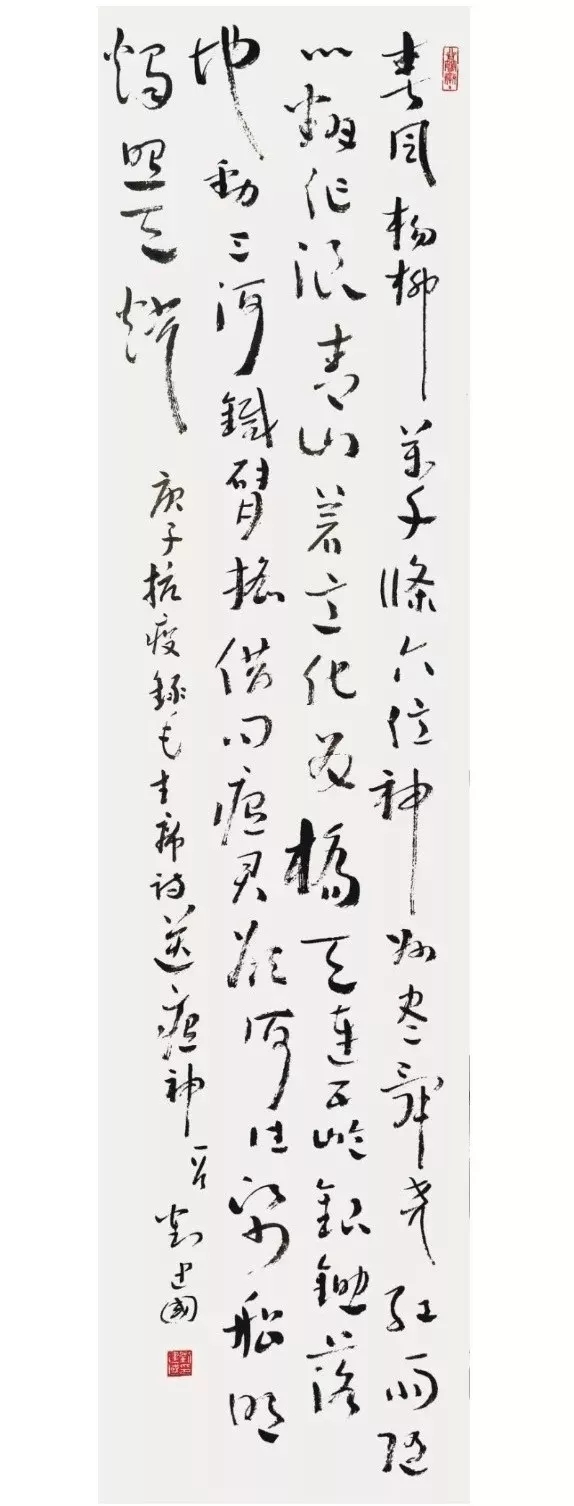 春風楊柳萬千條六億神州盡舜堯紅雨随
心翻作浪青山着意化為橋天連五嶺銀鋤落
地動三河鐵臂搖借問瘟君欲何往紙船明
燭照天燒
庚子抗疫錄毛主席詩送瘟神一首 劉建國